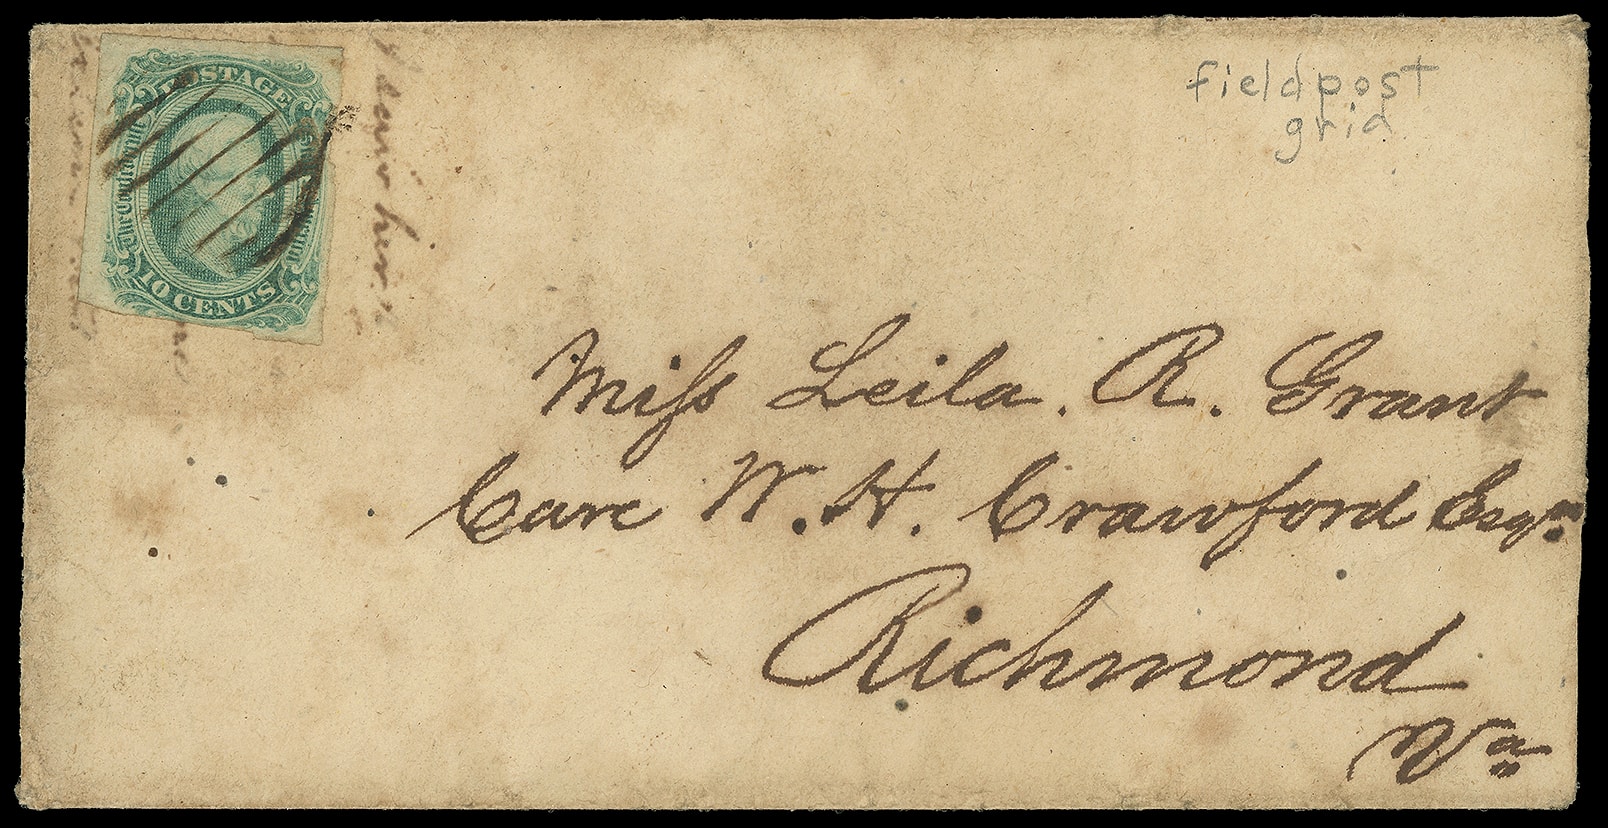 POSTAGE
The Confederate
10 CENTS
fieldpost
grid
Miss Leila. R. Grant
Care W. H. Crawford Esqr
Richmond
Va